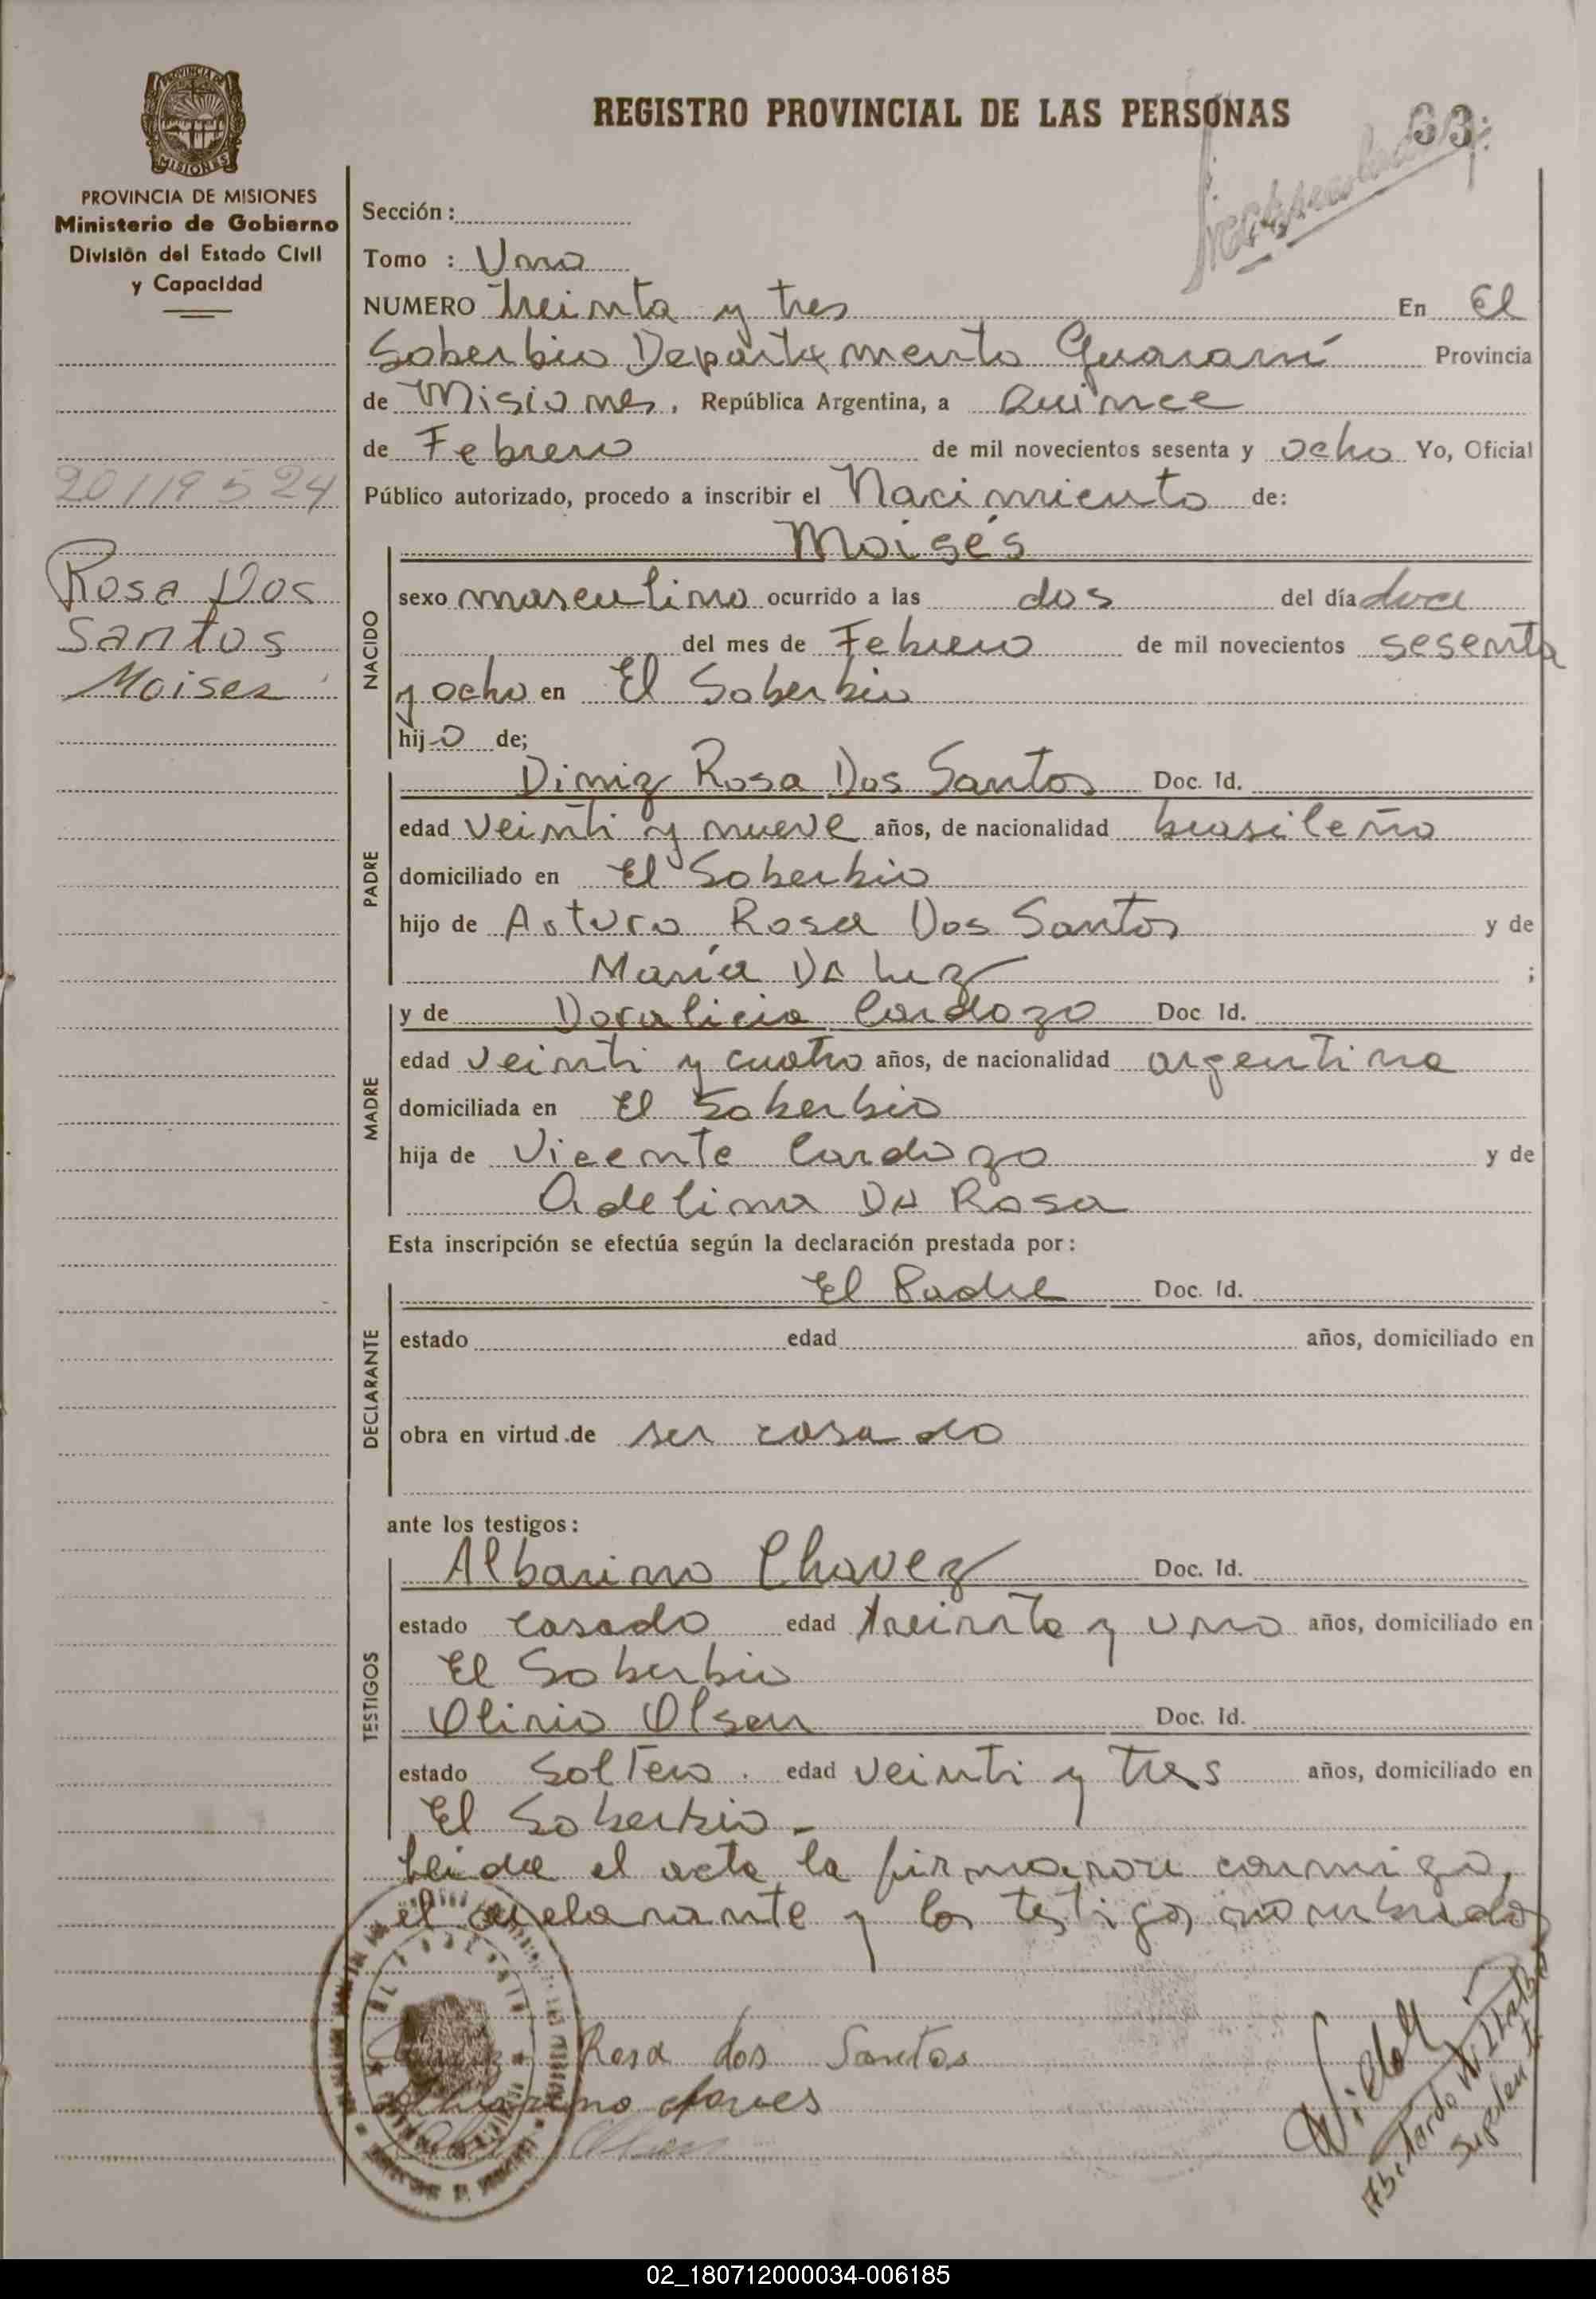 REGISTRO PROVINCIAL DE LAS PERSONAS
33
PROVINCIA DE MISIONES
Ministerio de Gobierno
División del Estado Civil
y Capacidad
20119524
Rosa Dos
Santos
Moises
Sección:
Tomo : Uno
NUMERO treinta y tres En El
Soberbio Departamento Guaraní Provincia
de Misiones, República Argentina, a Quince
de Febrero de mil novecientos sesenta y ocho Yo, Oficial
Público autorizado, procedo a inscribir el Nacimiento de:
Moisés
NACIDO
sexo masculino ocurrido a las dos del día doce
del mes de Febrero de mil novecientos sesenta
y ocho en El Soberbio
hijo de;
Diniz Rosa Dos Santos Doc. Id.
PADRE
edad veinti y nueve años, de nacionalidad brasileño
domiciliado en El Soberbio
hijo de Arturo Rosa Dos Santos y de
María Da Luz ;
y de Doralicia Cardozo Doc Id.
MADRE
edad veinti y cuatro años, de nacionalidad argentina
domiciliada en El Soberbio
hija de Vicente Cardozo y de
Adelina Da Rosa
Esta inscripción se efectúa según la declaración prestada por:
El Padre Doc. Id.
DECLARANTE
estado edad años, domiciliado en
obra en virtud de ser casado
ante los testigos:
Albarino Chavez Doc. Id.
TESTIGOS
estado casado edad treinta y uno años, domiciliado en
El Soberbio
Olirio Olsen Doc. Id.
estado Soltero. edad veinti y tres años, domiciliado en
El Soberbio -
Leida el acta la firmaron conmigo,
el declarante y los testigos nombrados
Rosa dos Santos
02_180712000034-006185